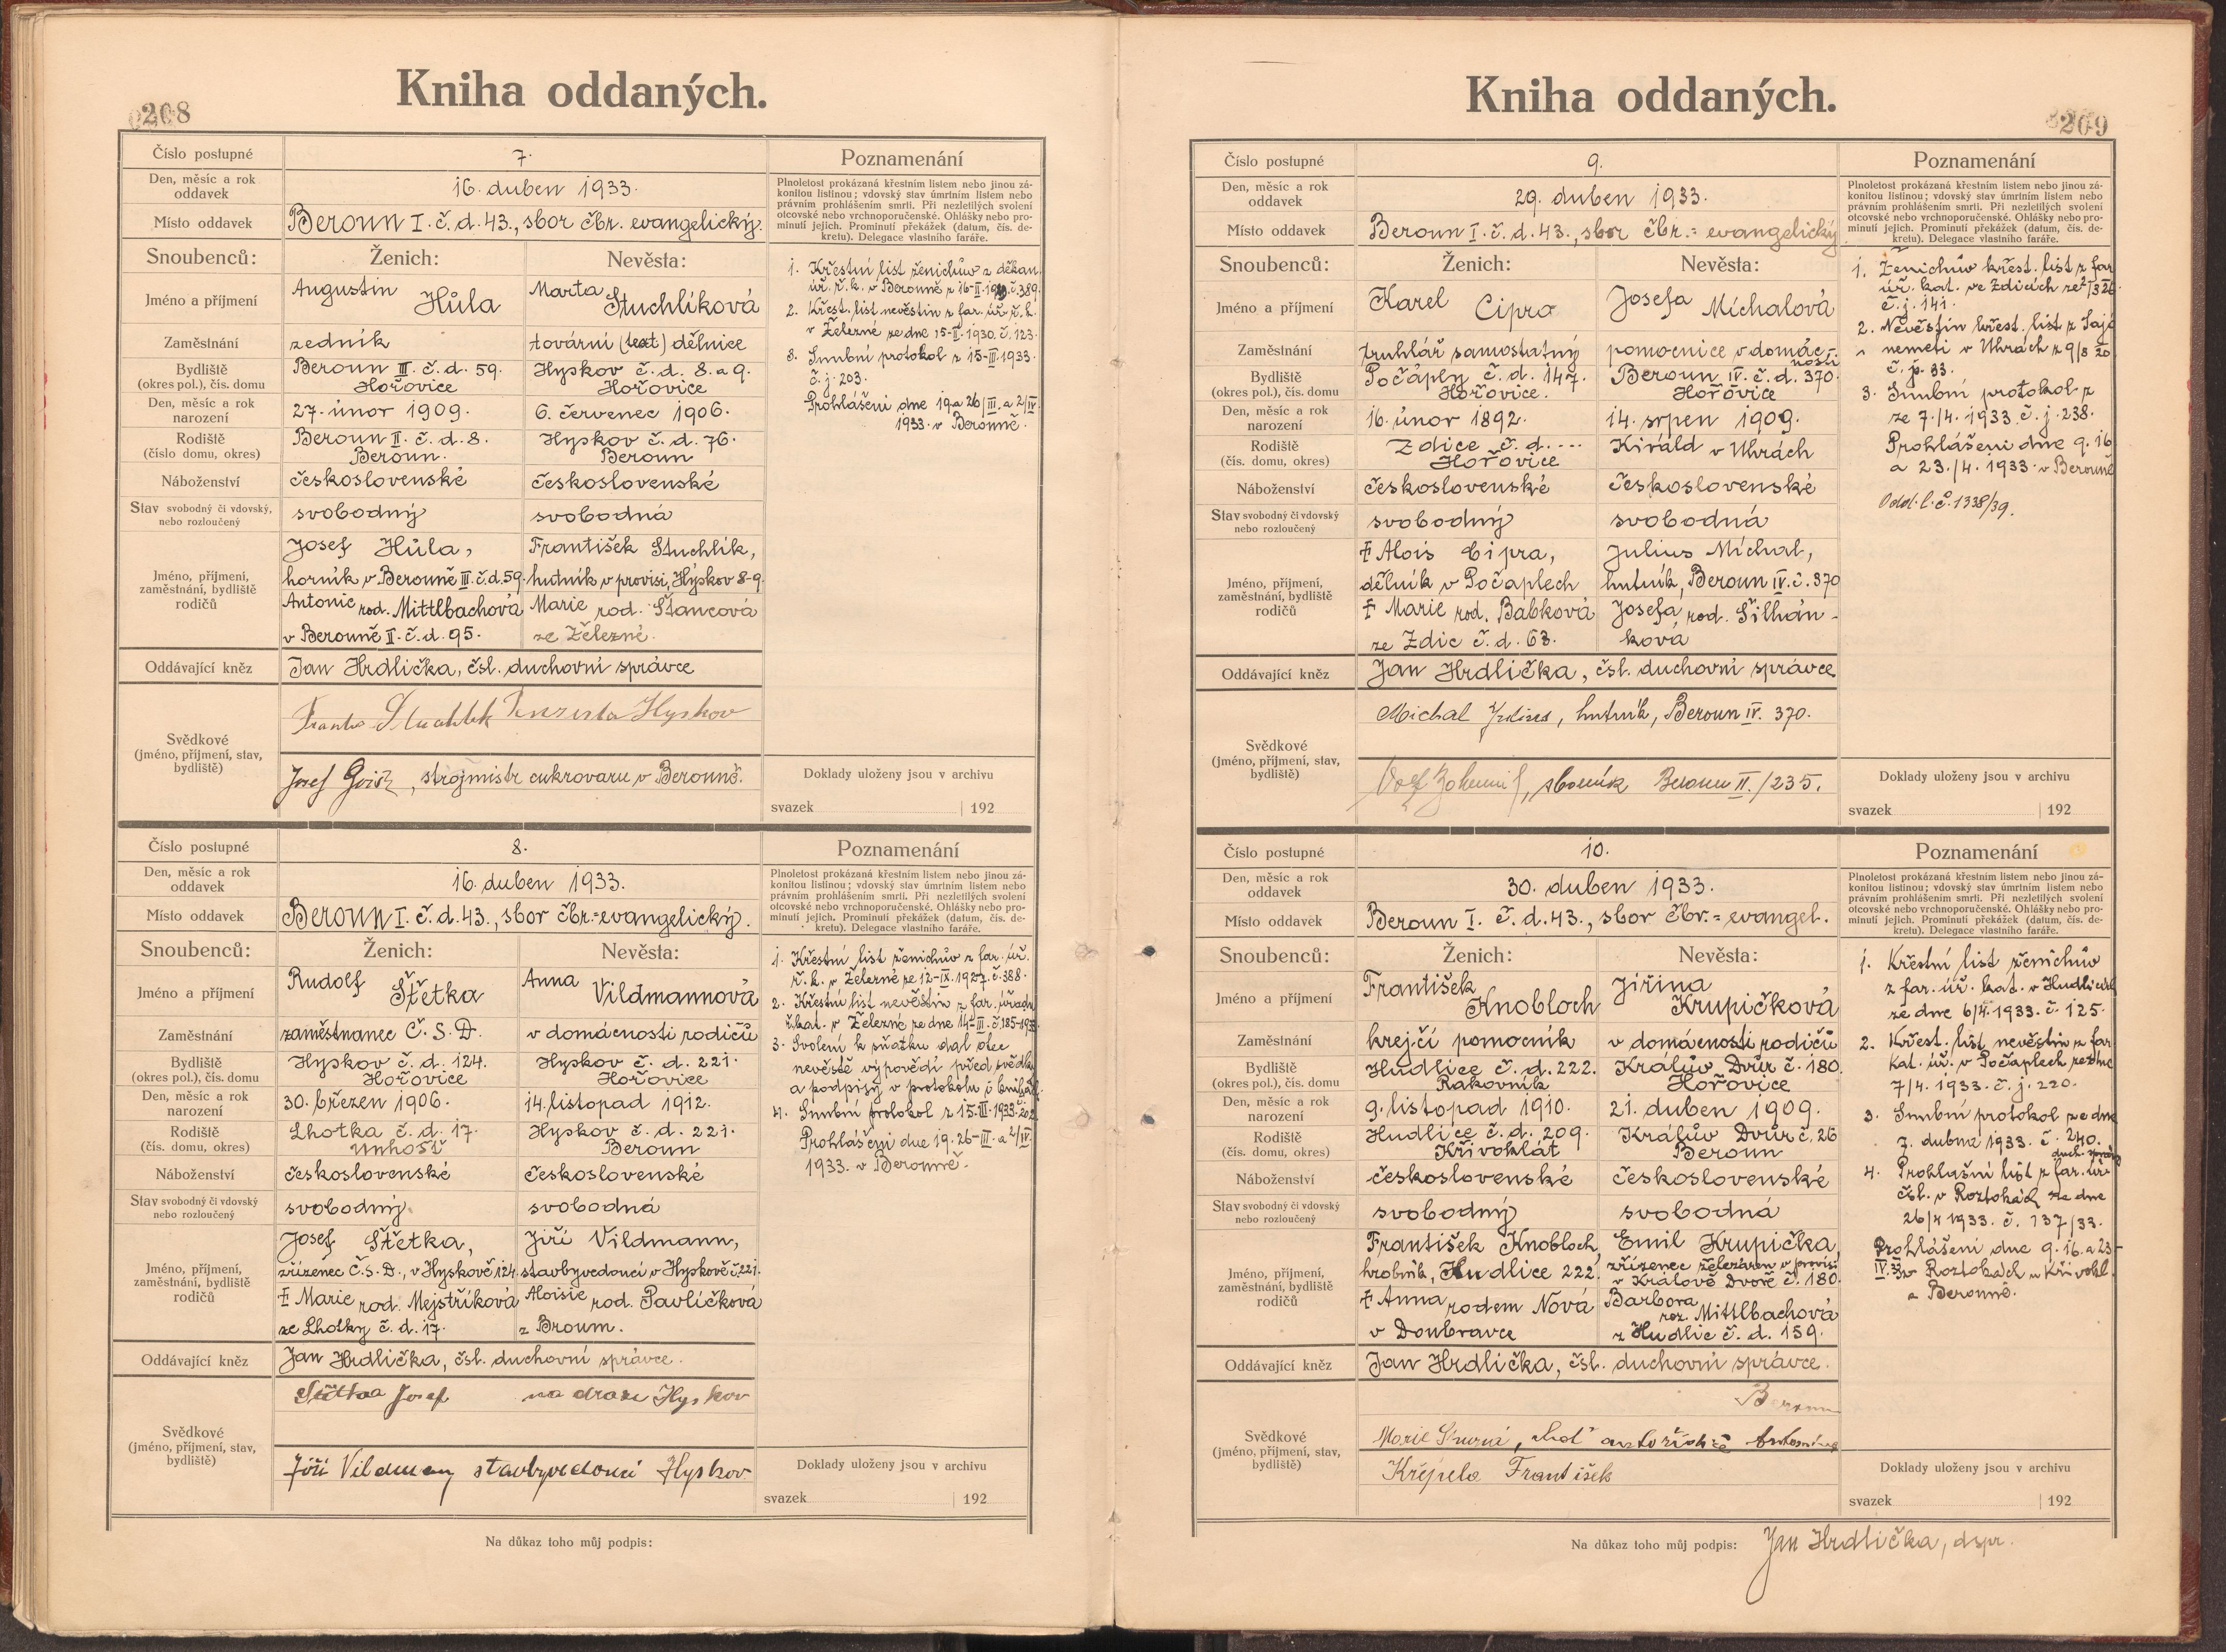 208
Kniha oddaných.
Číslo postupné
7.
Poznamenání
Den, měsíc a rok oddavek
16. duben 1933.
Plnoletost prokázaná křestním listem nebo jinou zá-
konitou listinou; vdovský stav úmrtním listem nebo
právním prohlášením smrti. Při nezletilých svolení
otcovské nebo vrchnoporučenské. Ohlášky nebo pro-
minutí jejich. Prominutí překážek (datum, čís. de-
kretu). Delegace vlastního faráře.
Místo oddavek
Beroun I. č. d. 43., sbor čbr. evangelický.
Snoubenců:
Ženich:
Nevěsta:
Jméno a příjmení
Augustin Hůla
Marta Stuchlíková
Zaměstnání
zedník
tovární (text) dělnice
Bydliště
(okres pol.), čís. domu
Beroun III. č. d. 59.
Hořovice
Hyskov č. d. 8. a 9.
Hořovice
Den, měsíc a rok narození
27. únor 1909.
6. červenec 1906.
Rodiště
(číslo domu, okres)
Beroun II. č. d. 8.
Beroun.
Hyskov č. d. 76.
Beroun
Náboženství
československé
československé
Stav svobodný či vdovský,
nebo rozloučený
svobodný
svobodná
Jméno, příjmení,
zaměstnání, bydliště
rodičů
Josef Hůla,
horník v Berouně III. č. d. 59.
Antonie rod. Mittlbachová
v Berouně II. č. d. 95.
František Stuchlík,
hutník v provisi, Hýskov 8-9.
Marie rod. Štancová
ze Železné.
Oddávající kněz
Jan Hrdlička, čsl. duchovní správce
Svědkové
(jméno, příjmení, stav,
bydliště)
Hyskov
Josef strojmistr cukrovaru v Berouně.
1. Křestní list ženichův z děkan.
úř. ř. k. v Berouně z 16-II-19 č. 389.
2. Křest. list nevěstin z far. úř. ř. k.
v Železné ze dne 15-II-1930. č. 123.
3. Snubní protokol z 15-III-1933.
č. j. 203.
Prohlášení dne 19. a 26/III. a 2/IV.
1933. v Berouně.
Doklady uloženy jsou v archivu
svazek | 192
Číslo postupné
8.
Poznamenání
Den, měsíc a rok oddavek
16. duben 1933.
Plnoletost prokázaná křestním listem nebo jinou zá-
konitou listinou; vdovský stav úmrtním listem nebo
právním prohlášením smrti. Při nezletilých svolení
otcovské nebo vrchnoporučenské. Ohlášky nebo pro-
minutí jejich. Prominutí překážek (datum, čís. de-
kretu). Delegace vlastního faráře.
Místo oddavek
Beroun I. č. d. 43., sbor čbr.=evangelický.
Snoubenců:
Ženich:
Nevěsta:
Jméno a příjmení
Rudolf Štětka
Anna Vildmannová
Zaměstnání
zaměstnanec Č. S. D.
v domácnosti rodičů
Bydliště
(okres pol.), čís. domu
Hyskov č. d. 124.
Hořovice
Hyskov č. d. 221.
Hořovice
Den, měsíc a rok narození
30. březen 1906.
14. listopad 1912.
Rodiště
(čís. domu, okres)
Lhotka č. d. 17.
Unhošť
Hyskov č. d. 221.
Beroun
Náboženství
československé
československé
Stav svobodný či vdovský
nebo rozloučený
svobodný.
svobodná
Jméno, příjmení,
zaměstnání, bydliště
rodičů
Josef Štětka,
zřízenec Č. S. D., v Hyskově 124
‡ Marie rod. Mejstříková
ze Lhotky č. d. 17.
Jiří Vildmann,
stavbyvedoucí v Hyskově č. 221.
Aloisie rod. Pavlíčková
z Broum.
Oddávající kněz
Jan Hrdlička, čsl. duchovní správce.
Svědkové
(jméno, příjmení, stav,
bydliště)
Josef na draze Hyskov
Jiří Vildman stavbyvedoucí Hyskov
1. Křestní list ženichův z far. úř.
ř. k. v Železné ze 12-IX-1927. č. 388.
2. Křestní list nevěstin z far. úřadu
ř. kat. v Železné ze dne 14-III. č. 185-1933
3. Svolení k sňatku dal otec
nevěstě výpovědí před svědky
a podpisy v protokolu
4. Snubní protokol z 15-III-1933. č. 202
Prohlášení dne 19. 26-III-a 2/IV.
1933. v Berouně.
Doklady uloženy jsou v archivu
svazek | 192
Na důkaz toho můj podpis:
209
Kniha oddaných.
Číslo postupné
9.
Poznamenání
Den, měsíc a rok oddavek
29. duben 1933.
Plnoletost prokázaná křestním listem nebo jinou zá-
konitou listinou; vdovský stav úmrtním listem nebo
právním prohlášením smrti. Při nezletilých svolení
otcovské nebo vrchnoporučenské. Ohlášky nebo pro-
minutí jejich. Prominutí překážek (datum, čís. de-
kretu). Delegace vlastního faráře.
Místo oddavek
Beroun I. č. d. 43., sbor čbr.= evangelický
Snoubenců:
Ženich:
Nevěsta:
Jméno a příjmení
Karel Cipra
Josefa Míchalová
Zaměstnání
truhlář samostatný
pomocnice v domác-
nosti
Bydliště
(okres pol.), čís. domu
Počáply č. d. 147.
Hořovice.
Beroun IV. č. d. 370.
Hořovice
Den, měsíc a rok narození
16. únor 1892.
14. srpen 1909.
Rodiště
(čís. domu, okres)
Zdice č. d. ---
Hořovice
Királd v Uhrách
Náboženství
československé
československé
Stav svobodný či vdovský
nebo rozloučený
svobodný
svobodná
Jméno, příjmení,
zaměstnání, bydliště
rodičů
‡ Alois Cipra,
dělník v Počaplech
‡ Marie rod. Babková
ze Zdic č. d. 63.
Julius Míchal,
hutník, Beroun IV. č. 370
Josefa, rod. Šilhán-
ková
Oddávající kněz
Jan Hrdlička, čsl. duchovní správce
Svědkové
(jméno, příjmení, stav,
bydliště)
Michal Julius, hutník, Beroun IV. 370.
Bohumil, Beroun II./235.
1. Ženichův křest. list z far.
úř. kat. ve Zdicích
č. j. 141.
2. Nevěstin křest. list z Sajó
nemeti v Uhrách z 9/8 20.
č. p. 33.
3. Snubní protokol z
ze 7./4. 1933. č. j. 238.
Prohlášení dne 9. 16
a 23./4. 1933. v Berouně
Odd. l. č. 1338/39.
Doklady uloženy jsou v archivu
svazek | 192
Číslo postupné
10.
Poznamenání
Den, měsíc a rok oddavek
30. duben 1933.
Plnoletost prokázaná křestním listem nebo jinou zá-
konitou listinou; vdovský stav úmrtním listem nebo
právním prohlášením smrti. Při nezletilých svolení
otcovské nebo vrchnoporučenské. Ohlášky nebo pro-
minutí jejich. Prominutí překážek (datum, čís. de-
kretu). Delegace vlastního faráře.
Místo oddavek
Beroun I. č. d. 43., sbor čbr.= evangel.
Snoubenců:
Ženich:
Nevěsta:
Jméno a příjmení
František Knobloch
Jiřina Krupičková
Zaměstnání
krejčí pomocník
v domácnosti rodičů
Bydliště
(okres pol.), čís. domu
Hudlice č. d. 222.
Rakovník
Králův Dvůr č. 180.
Hořovice
Den, měsíc a rok narození
9. listopad 1910.
21. duben 1909.
Rodiště
(čís. domu, okres)
Hudlice č. d. 209.
Křivoklát
Králův Dvůr č. 26
Beroun
Náboženství
československé
československé
Stav svobodný či vdovský
nebo rozloučený
svobodný
svobodná
Jméno, příjmení,
zaměstnání, bydliště
rodičů
František Knobloch,
hrobník, Hudlice 222.
‡ Anna rodem Nová
v Doubravce
Emil Krupička,
zřízenec železáren v provisi
v Králově Dvoře č. 180.
Barbora
roz. Mittlbachová
z Hudlic č. d. 159.
Oddávající kněz
Jan Hrdlička, čsl. duchovní správce.
Svědkové
(jméno, příjmení, stav,
bydliště)
Beroun
Marie
Křepela František
1. Křestní list ženichův
z far. úř. kat. v Hudlicích
ze dne 6/4. 1933. č. 125.
2. Křest. list nevěstin z far.
kat. úř. v Počaplech ze dne
7/4. 1933. č. j. 220.
3. Snubní protokol ze dne
7. dubna 1933. č. 240.
duch. správy
4. Prohlašní list z far. úř.
čsl. v Roztokách ze dne
26/4 1933. č. 137/33.
Prohlášení dne 9. 16. a 23-
IV. 33 v Roztokách u Křivokl.
a Berouně.
Doklady uloženy jsou v archivu
svazek | 192
Na důkaz toho můj podpis:
Jan Hrdlička, dspr.